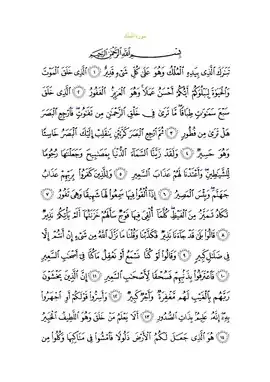 سورة الملك
بِسْمِ اللَّهِ الرَّحْمَٰنِ الرَّحِيمِ
تَبَٰرَكَ ٱلَّذِى بِيَدِهِ ٱلْمُلْكُ وَهُوَ عَلَىٰ كُلِّ شَىْءٍ قَدِيرٌ ١ ٱلَّذِى خَلَقَ ٱلْمَوْتَ
وَٱلْحَيَوٰةَ لِيَبْلُوَكُمْ أَيُّكُمْ أَحْسَنُ عَمَلًا وَهُوَ ٱلْعَزِيزُ ٱلْغَفُورُ ٢ ٱلَّذِى خَلَقَ
سَبْعَ سَمَٰوَٰتٍ طِبَاقًا مَّا تَرَىٰ فِى خَلْقِ ٱلرَّحْمَٰنِ مِن تَفَٰوُتٍ فَٱرْجِعِ ٱلْبَصَرَ
هَلْ تَرَىٰ مِن فُطُورٍ ٣ ثُمَّ ٱرْجِعِ ٱلْبَصَرَ كَرَّتَيْنِ يَنقَلِبْ إِلَيْكَ ٱلْبَصَرُ خَاسِئًا
وَهُوَ حَسِيرٌ ٤ وَلَقَدْ زَيَّنَّا ٱلسَّمَآءَ ٱلدُّنْيَا بِمَصَٰبِيحَ وَجَعَلْنَٰهَا رُجُومًا
لِّلشَّيَٰطِينِ وَأَعْتَدْنَا لَهُمْ عَذَابَ ٱلسَّعِيرِ ٥ وَلِلَّذِينَ كَفَرُوا۟ بِرَبِّهِمْ عَذَابُ
جَهَنَّمَ وَبِئْسَ ٱلْمَصِيرُ ٦ إِذَآ أُلْقُوا۟ فِيهَا سَمِعُوا۟ لَهَا شَهِيقًا وَهِىَ تَفُورُ ٧
تَكَادُ تَمَيَّزُ مِنَ ٱلْغَيْظِ كُلَّمَآ أُلْقِىَ فِيهَا فَوْجٌ سَأَلَهُمْ خَزَنَتُهَآ أَلَمْ يَأْتِكُمْ نَذِيرٌ
٨ قَالُوا۟ بَلَىٰ قَدْ جَآءَنَا نَذِيرٌ فَكَذَّبْنَا وَقُلْنَا مَا نَزَّلَ ٱللَّهُ مِن شَىْءٍ إِنْ أَنتُمْ إِلَّا
فِى ضَلَٰلٍ كَبِيرٍ ٩ وَقَالُوا۟ لَوْ كُنَّا نَسْمَعُ أَوْ نَعْقِلُ مَا كُنَّا فِىٓ أَصْحَٰبِ ٱلسَّعِيرِ
١٠ فَٱعْتَرَفُوا۟ بِذَنۢبِهِمْ فَسُحْقًا لِّأَصْحَٰبِ ٱلسَّعِيرِ ١١ إِنَّ ٱلَّذِينَ يَخْشَوْنَ
رَبَّهُم بِٱلْغَيْبِ لَهُم مَّغْفِرَةٌ وَأَجْرٌ كَبِيرٌ ١٢ وَأَسِرُّوا۟ قَوْلَكُمْ أَوِ ٱجْهَرُوا۟
بِهِۦٓ إِنَّهُۥ عَلِيمٌۢ بِذَاتِ ٱلصُّدُورِ ١٣ أَلَا يَعْلَمُ مَنْ خَلَقَ وَهُوَ ٱللَّطِيفُ ٱلْخَبِيرُ
١٤ هُوَ ٱلَّذِى جَعَلَ لَكُمُ ٱلْأَرْضَ ذَلُولًا فَٱمْشُوا۟ فِى مَنَاكِبِهَا وَكُلُوا۟ مِن